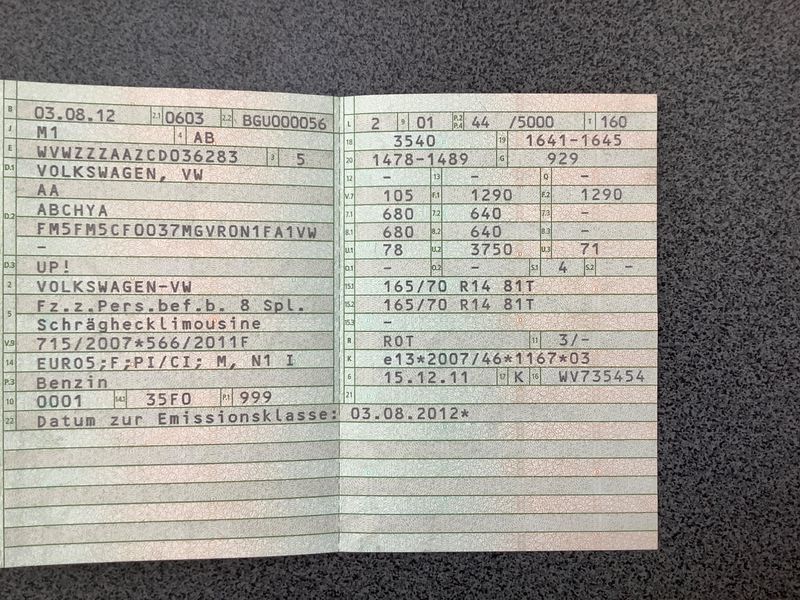 B 03.08.12 2.1 0603 2.2 BGU000056
J M1 4 AB
E WVWZZZAAZCD036283 3 5
D.1 VOLKSWAGEN, VW
AA
D.2 ABCHYA
FM5FM5CF0037MGVR0N1FA1VW
–
D.3 UP!
2 VOLKSWAGEN-VW
5 Fz.z.Pers.bef.b. 8 Spl.
Schräghecklimousine
V.9 715/2007*566/2011F
14 EURO5;F;PI/CI; M, N1 I
P.3 Benzin
10 0001 14.1 35F0 P.1 999
22 Datum zur Emissionsklasse: 03.08.2012*
L 2 9 01 P.2 P.4 44 /5000 T 160
18 3540 19 1641-1645
20 1478-1489 G 929
12 – 13 – Q –
V.7 105 F.1 1290 F.2 1290
7.1 680 7.2 640 7.3 –
8.1 680 8.2 640 8.3 –
U.1 78 U.2 3750 U.3 71
O.1 – O.2 – S.1 4 S.2 –
15.1 165/70 R14 81T
15.2 165/70 R14 81T
15.3 –
R ROT 11 3/-
K e13*2007/46*1167*03
6 15.12.11 17 K 16 WV735454
21